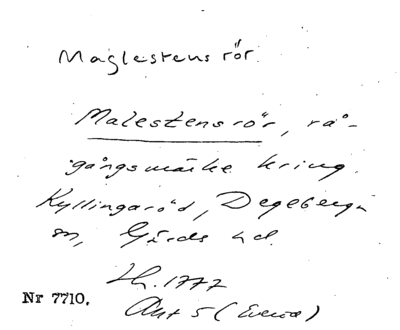 Maglestens rör.
Malestensrör, rå-
gångsmärke kring.
Kyllingaröd, Degeberga
sn, Gärds hd.
Lh. 1777
Nr 7710.
Akt 5 (Everöd)